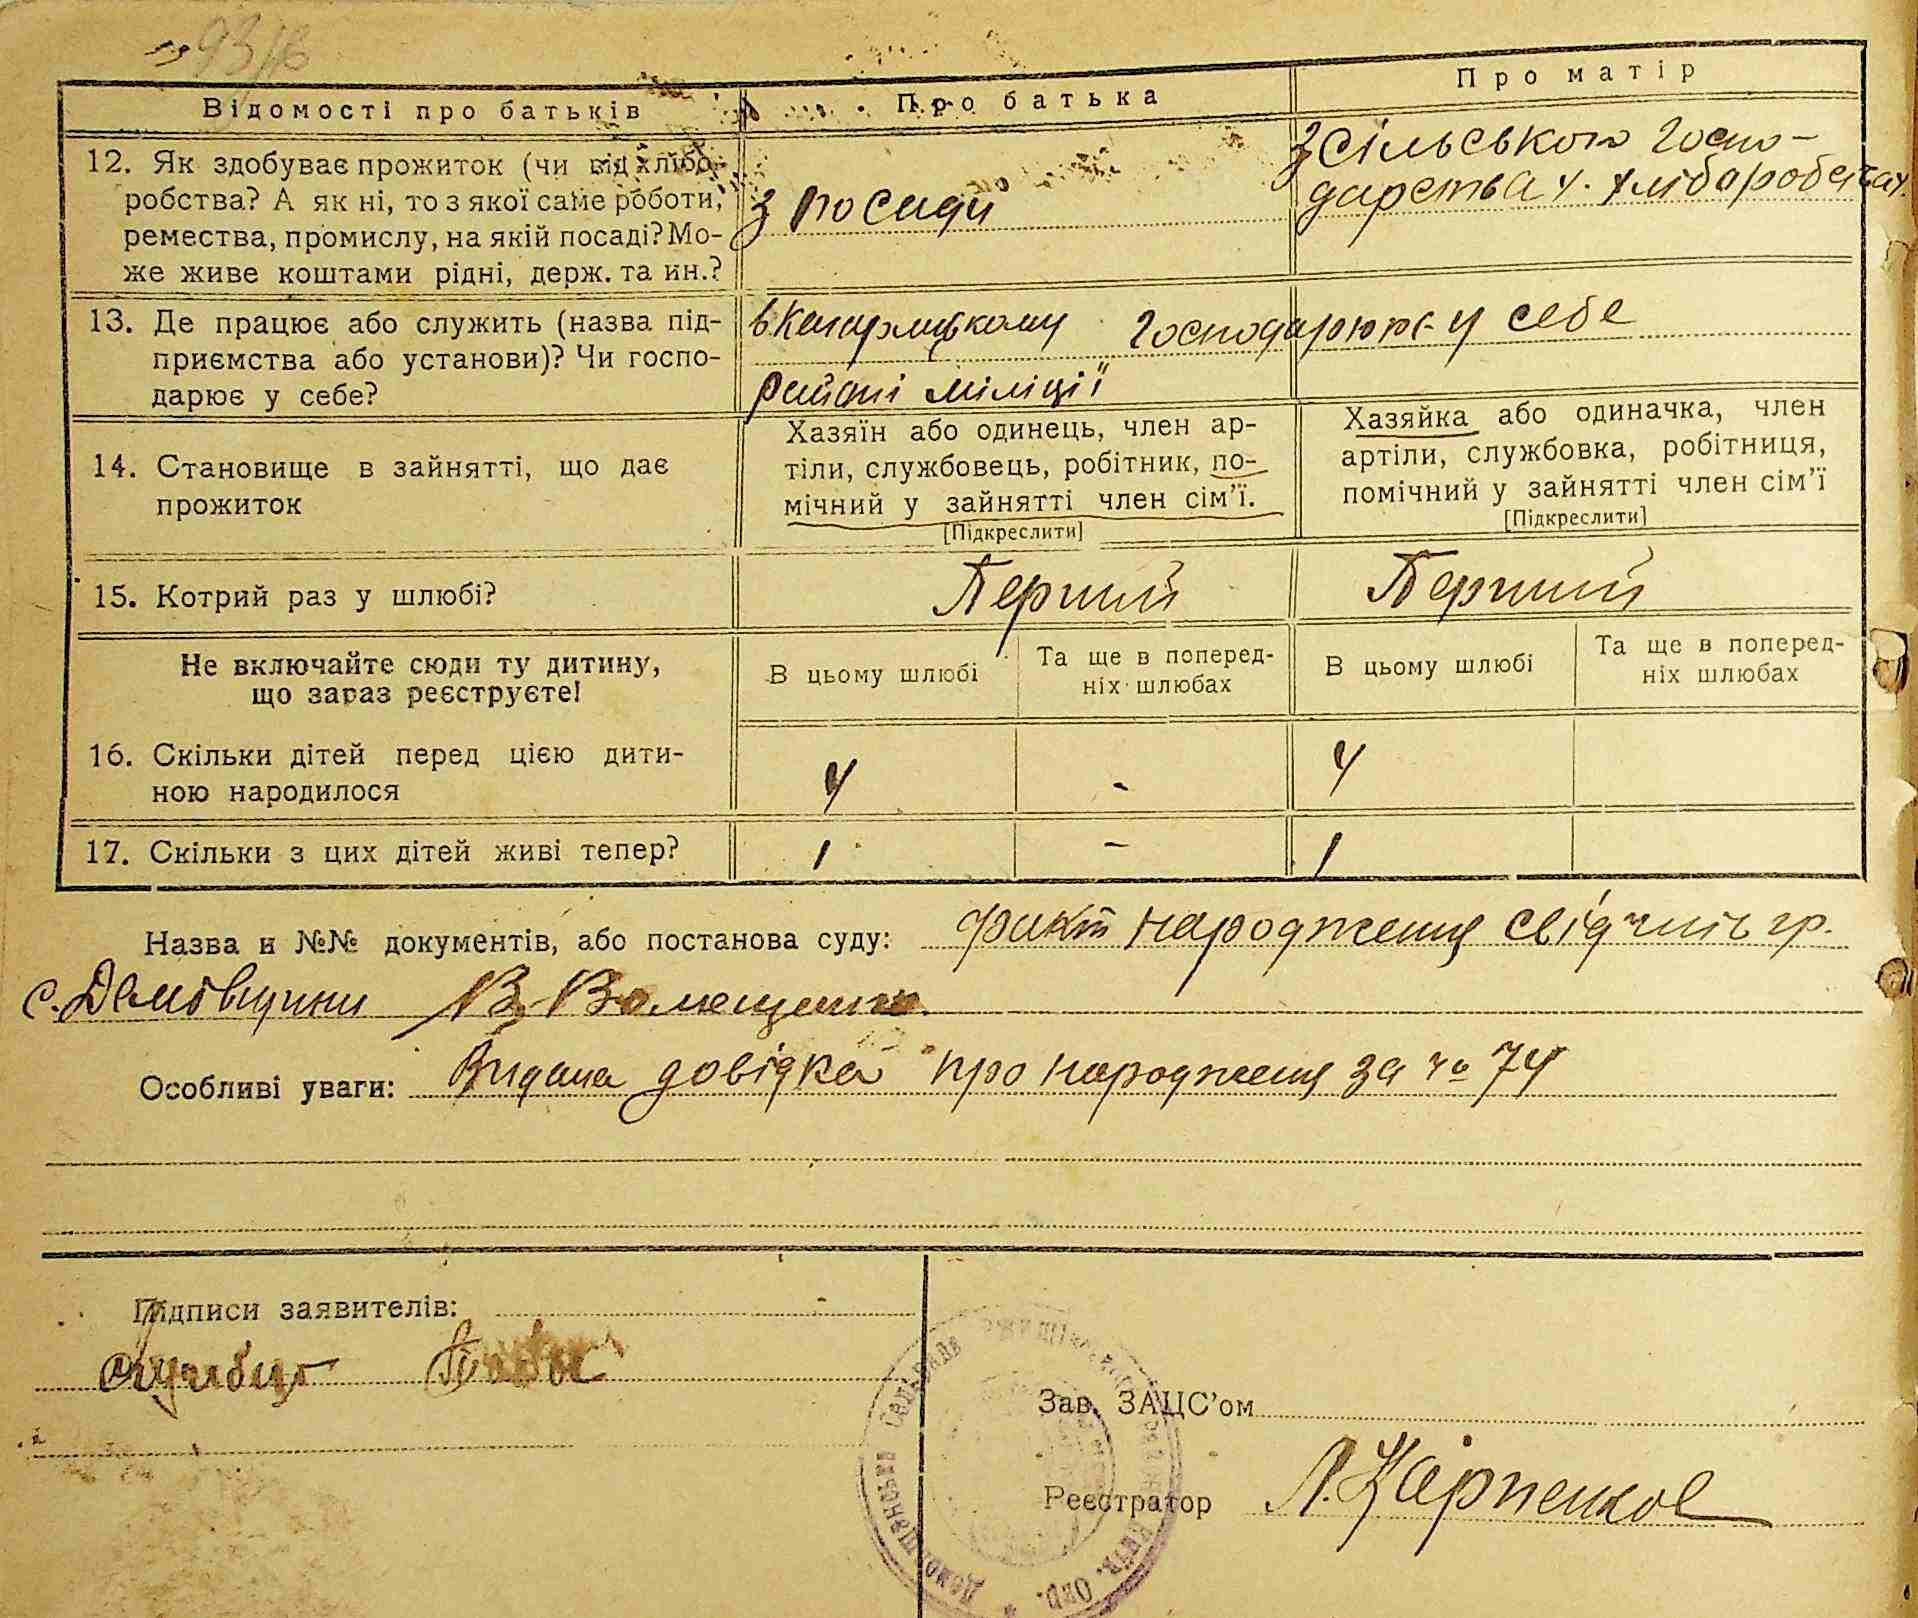 Відомості про батьків
Про батька
Про матір
12. Як здобуває прожиток (чи від хлібо-
робства? А як ні, то з якої саме роботи,
ремества, промислу, на якій посаді? Мо-
же живе коштами рідні, держ. та ин.?
з посади
з сільського госпо-
дарства
13. Де працює або служить (назва під-
приємства або установи)? Чи госпо-
дарює у себе?
в Кагарлицькому
районі міліції
господарює у себе
14. Становище в зайнятті, що дає
прожиток
Хазяїн або одинець, член ар-
тіли, службовець, робітник, по-
мічний у зайнятті член сім’ї.
[Підкреслити]
Хазяйка або одиначка, член
артіли, службовка, робітниця,
помічний у зайнятті член сім’ї
[Підкреслити]
15. Котрий раз у шлюбі?
Перший
Перший
Не включайте сюди ту дитину,
що зараз реєструєте!
В цьому шлюбі
Та ще в поперед-
ніх шлюбах
В цьому шлюбі
Та ще в поперед-
ніх шлюбах
16. Скільки дітей перед цією дити-
ною народилося
4
-
4
17. Скільки з цих дітей живі тепер?
1
-
1
Назва и №№ документів, або постанова суду: факт народження свідчить гр.
с.
Особливі уваги: Видана довідка про народження за № 74
Підписи заявителів:
Зав. ЗАЦС’ом
Реєстратор Л. Карпенков